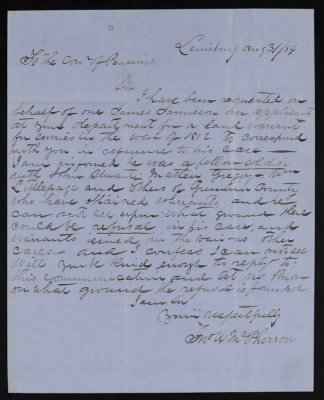 Lewisburg Aug 31/54
To the Com of Pensions
Sir
I have been requested on
behalf of one James Jamison an applicant
at your department for a land warrant
for services in the war of 1812 to correspond
with you in reference to his case —
I am informed he was a fellow soldier
with John Stuart, Mathew Gregg, Wm
Littlepage and others of Greenbrier County
who have obtained warrants, and he
can not see upon what ground there
could be refusal in his case, and
warrants issued in the various other
cases — and I confess I can not see
Will you be kind enough to reply to
this communication and let me know
on what ground the refusal is founded
I am Sir
Yours respectfully
Jno W McPherson